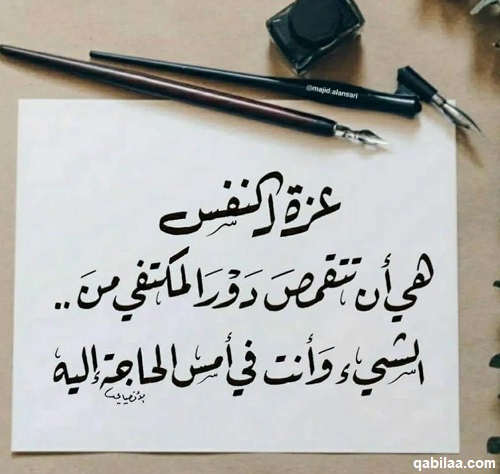 @majid.alansari
عزة النفس
هي أن تتقمصَ دَوْرَ المكتفي منَ ..
الشيء وَأنت في أمس الحاجة إليه
qabilaa.com